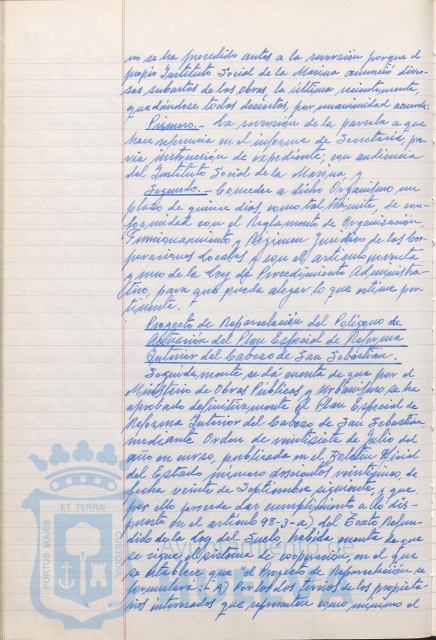 no se ha procedido antes a la reversión porque el
propio Instituto Social de la Marina anunció diver-
sas subastas de las obras, la última recientemente,
quedándose todas desiertas, por unanimidad acuerda:
Primero.- La reversión de la parcela a que
hace referencia en el informe de Secretaría, pre-
via instrucción de expediente, con audiencia
del Instituto Social de la Marina, y
Segundo.- Conceder a dicho Organismo un
plazo de quince días como tal trámite, de con-
formidad con el Reglamento de Organización,
Funcionamiento y Régimen Jurídico de las Cor-
poraciones Locales y con el artículo noventa
y uno de la Ley de Procedimiento Administra-
tivo, para que pueda alegar lo que estime per-
tinente.
Proyecto de Reparcelación del Polígono de
Actuación del Plan Especial de Reforma
Interior del Cabezo de San Sebastián.
Seguidamente se dá cuenta de que por el
Ministerio de Obras Públicas y Urbanismo, se ha
aprobado definitivamente el Plan Especial de
Reforma Interior del Cabezo de San Sebastián,
mediante Orden de veintisiete de Julio del
año en curso, publicada en el Boletín Oficial
del Estado número doscientos veinticinco, de
fecha veinte de Septiembre siguiente, y que
por ello procede dar cumplimiento a lo dis-
puesto en el artículo 98-3-a) del Texto Refun-
dido de la Ley del Suelo, habida cuenta de que
se sigue el sistema de cooperación en el que
se establece que "el Proyecto de Reparcelación se
formulará: - A) Por los dos tercios de los propieta-
rios interesados que representen como mínimo el
PORTUS MARIS
ET TERRÆ
CUSTODIA